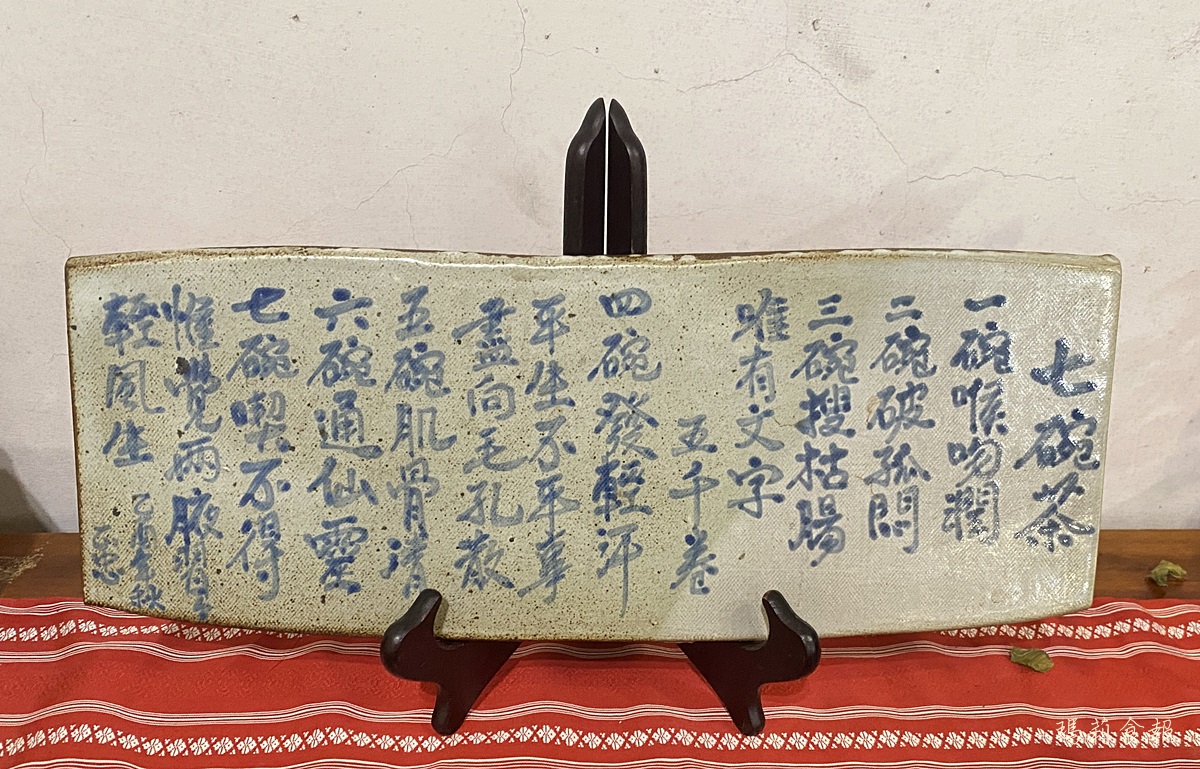 七碗茶
一碗喉吻潤
二碗破孤悶
三碗搜枯腸
唯有文字
五千卷
四碗發輕汗
平生不平事
盡向毛孔散
五碗肌骨清
六碗通仙靈
七碗喫不得
惟覺兩腋習々
輕風生
乙酉年秋
瑪莉食報